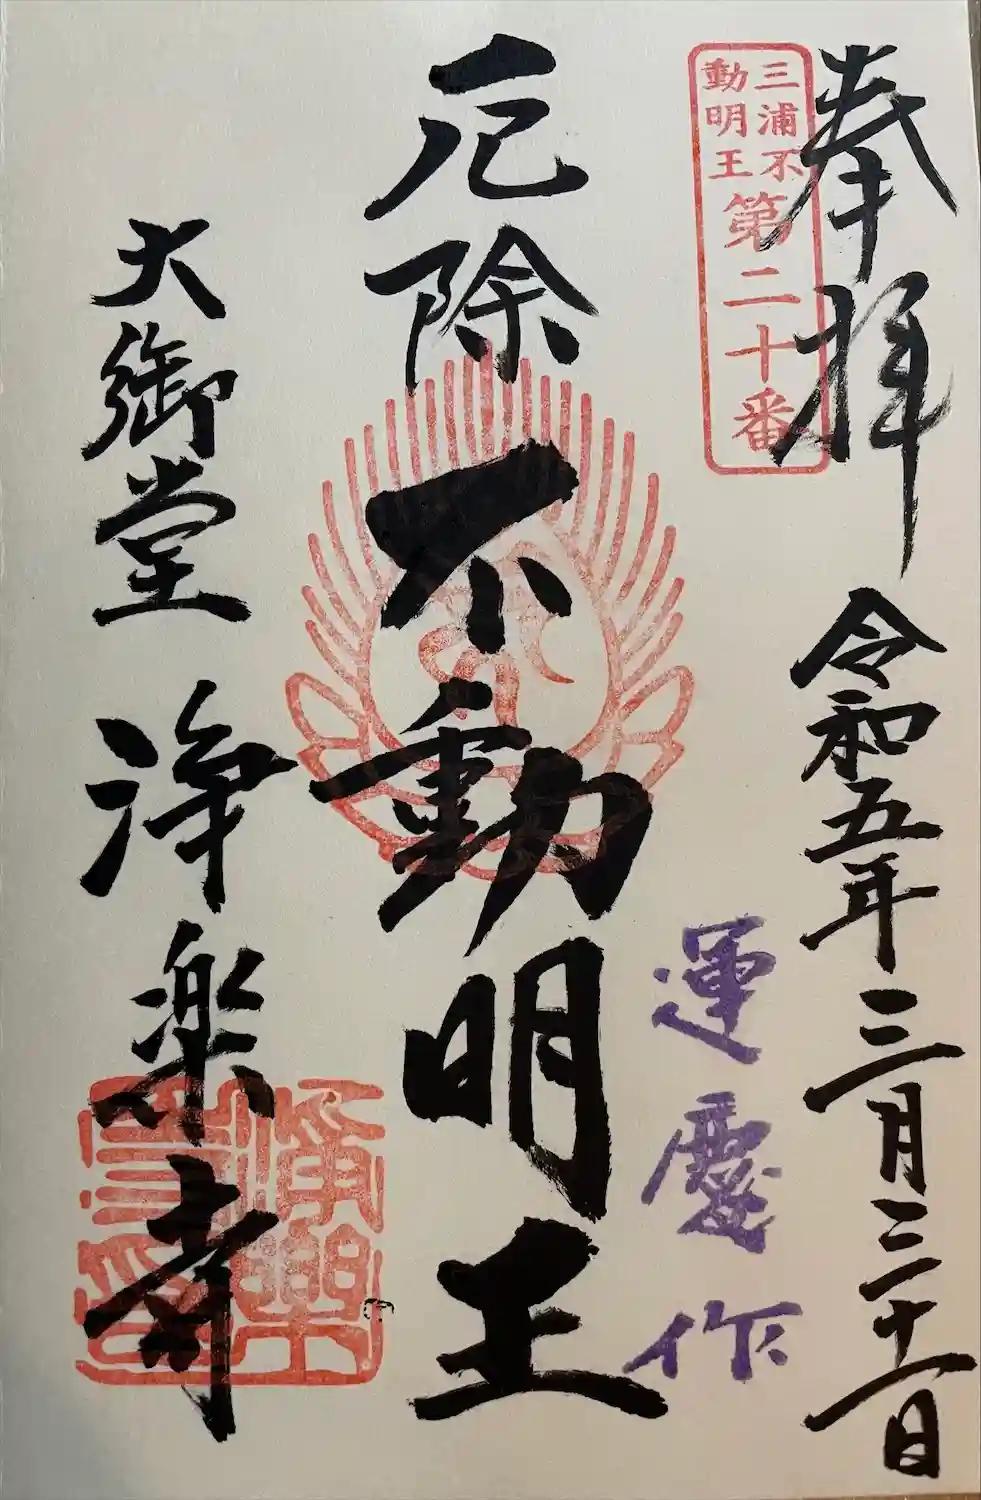 奉拝
令和五年三月三十一日
三浦不
動明王
第二十番
運慶作
厄除
不動明王
大御堂 浄楽寺